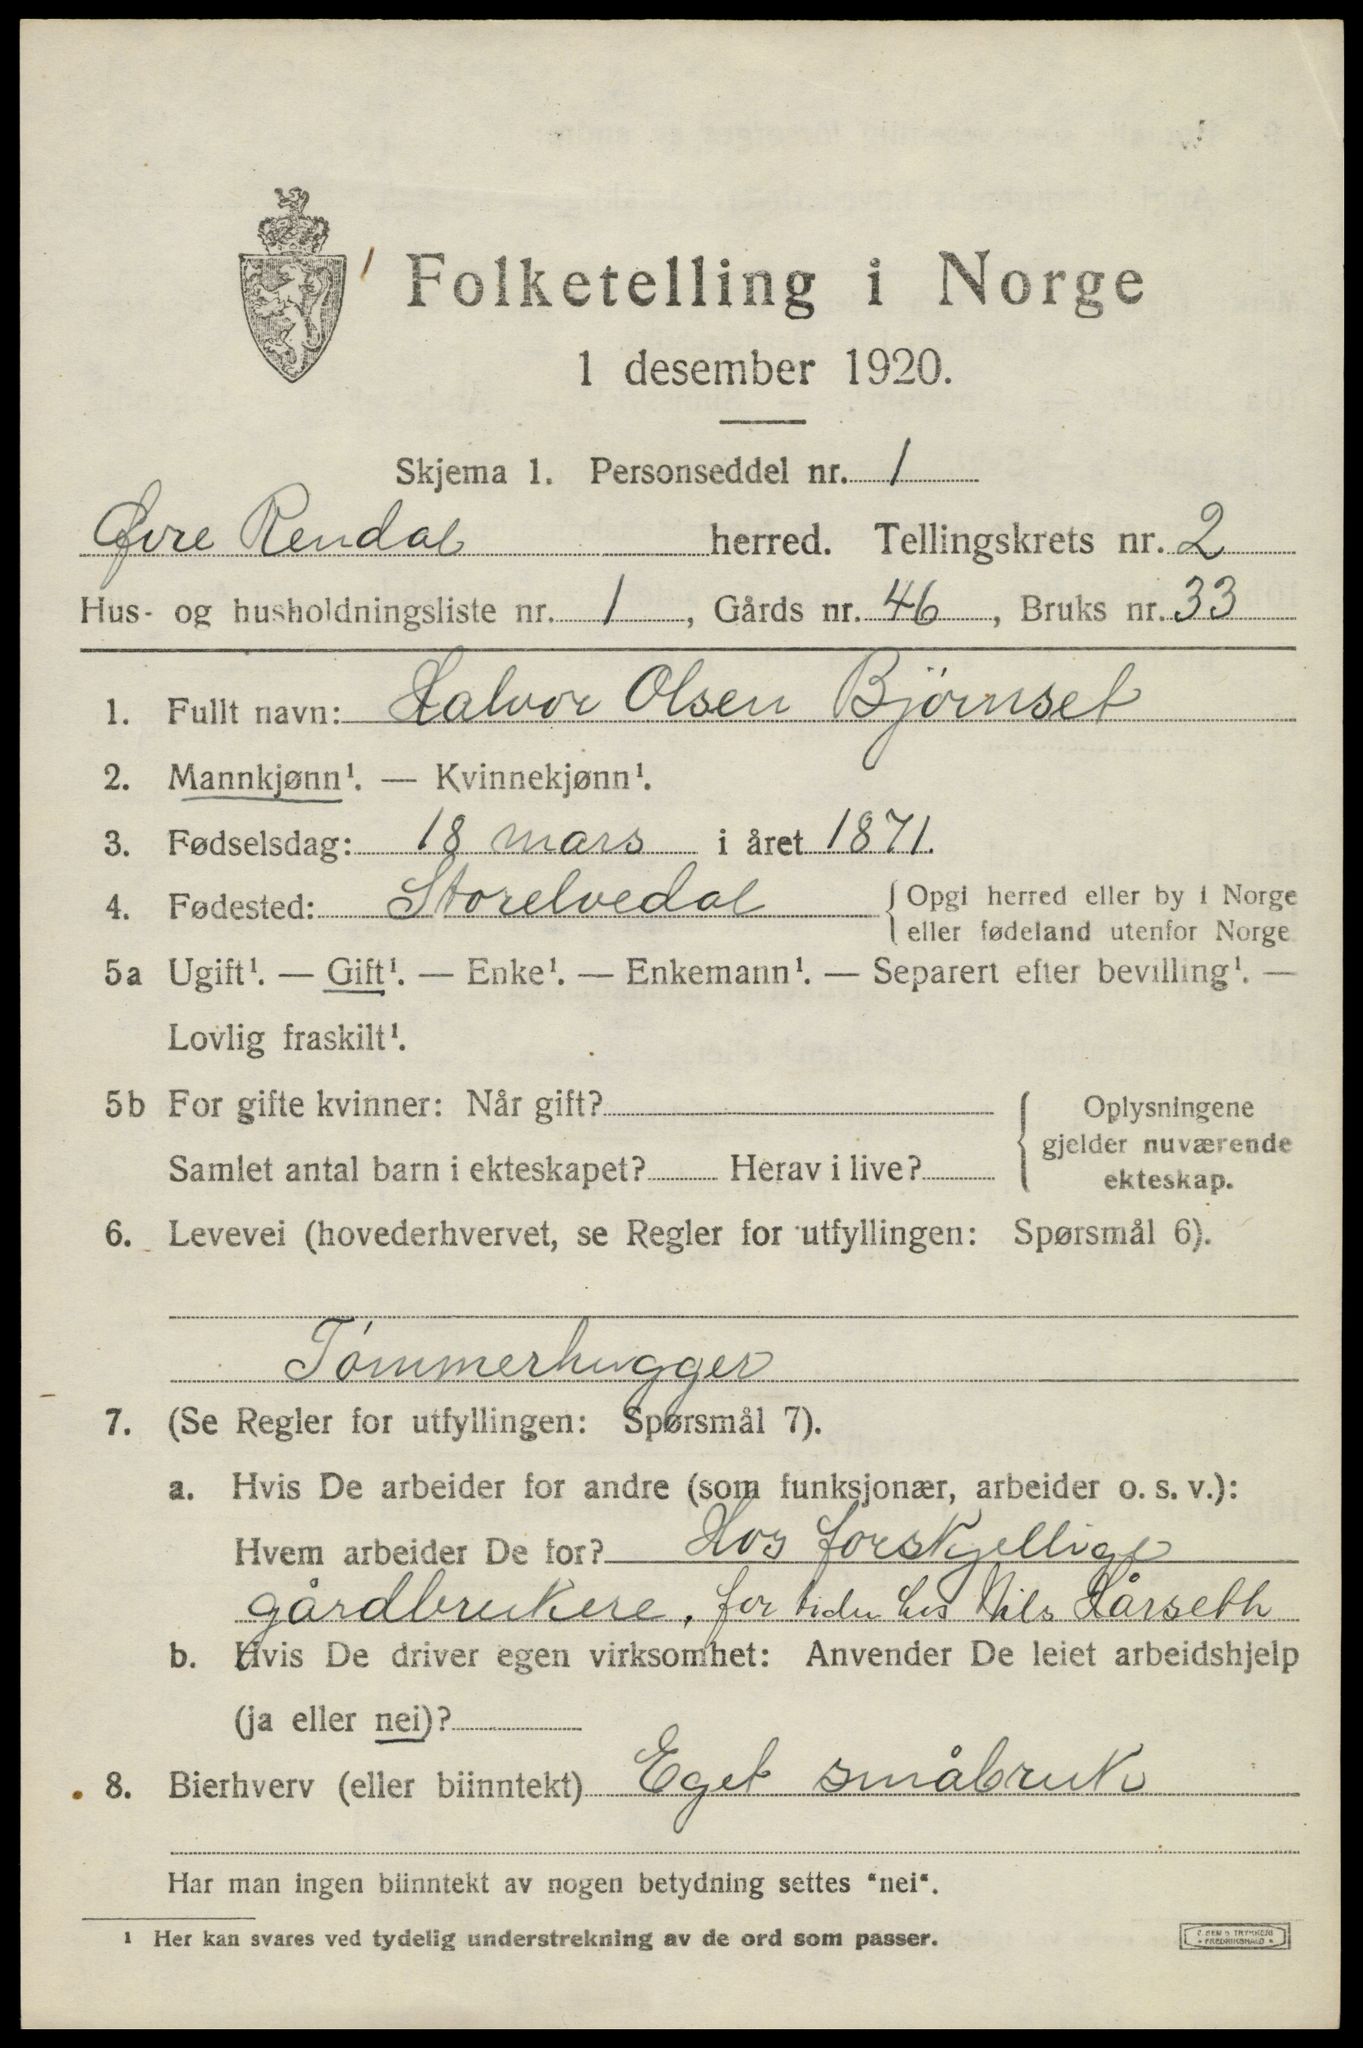 Folketelling i Norge
1 desember 1920.
Skjema 1. Personseddel nr. 1
Øvre Rendal herred. Tellingskrets nr. 2
Hus- og husholdningsliste nr. 1, Gårds nr. 46, Bruks nr. 33
1. Fullt navn: Halvor Olsen Bjørnset
2. Mannkjønn¹. — Kvinnekjønn¹.
3. Fødselsdag: 18 mars i året 1871.
4. Fødested: Storelvedal { Opgi herred eller by i Norge
eller fødeland utenfor Norge
5a Ugift¹. — Gift¹. — Enke¹. — Enkemann¹. — Separert efter bevilling¹. —
Lovlig fraskilt¹.
5b For gifte kvinner: Når gift? { Oplysningene
gjelder nuværende
Samlet antal barn i ekteskapet? Herav i live? ekteskap.
6. Levevei (hovederhvervet, se Regler for utfyllingen: Spørsmål 6).
Tømmerhugger
7. (Se Regler for utfyllingen: Spørsmål 7).
a. Hvis De arbeider for andre (som funksjonær, arbeider o. s. v.):
Hvem arbeider De for? Hos forskjellige
gårdbrukere, for tiden hos Nils Hårseth
b. Hvis De driver egen virksomhet: Anvender De leiet arbeidshjelp
(ja eller nei)?
8. Bierhverv (eller biinntekt) Eget småbruk
Har man ingen biinntekt av nogen betydning settes "nei".
¹ Her kan svares ved tydelig understrekning av de ord som passer.